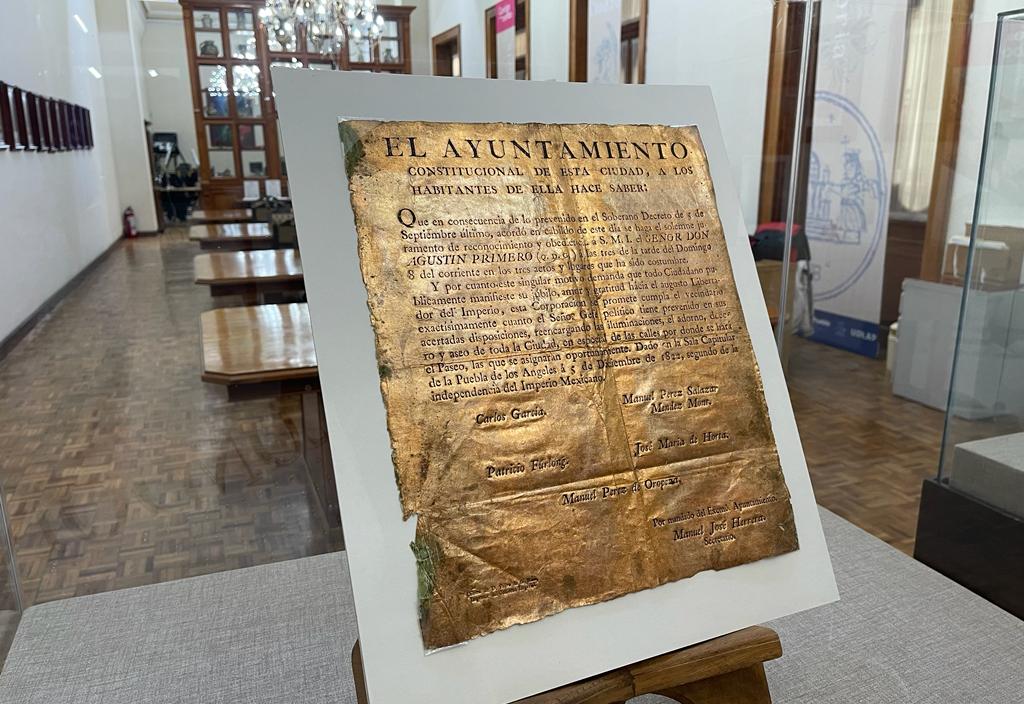 EL AYUNTAMIENTO
CONSTITUCIONAL DE ESTA CIUDAD, A LOS
HABITANTES DE ELLA HACE SABER:
Que en consecuencia de lo prevenido en el Soberano Decreto de 5 de
Septiembre último, acordó en cabildo de este dia se haga el solemne ju
ramento de reconocimiento y obediencia á S. M. I. el SEÑOR DON
AGUSTIN PRIMERO (q. D. g.) á las tres de la tarde del Domingo
8 del corriente en los tres actos y lugares que ha sido costumbre.
Y por cuanto este singular motivo demanda que todo Ciudadano pu-
blicamente manifieste su júbilo, amor y gratitud hácia el augusto Liberta-
dor del Imperio, esta Corporacion se promete cumpla el vecindario
exactísimamente cuanto el Señor Gefe político tiene prevenido en sus
acertadas disposiciones, reencargando las iluminaciones, el adorno, deco-
ro y aseo de toda la Ciudad, en especial de las calles por donde se hará
el Paseo, las que se asignarán oportunamente. Dado en la Sala Capitular
de la Puebla de los Angeles á 5 de Diciembre de 1822, segundo de la
independencia del Imperio Mexicano.
Carlos García.
Manuel Perez Salazar
Mendez Mont.
Patricio Furlong.
José Maria de Horta.
Manuel Perez de Oropeza.
Por mandado del Exmô. Ayuntamiento.
Manuel José Herrera.
Secretario.
UDLAP